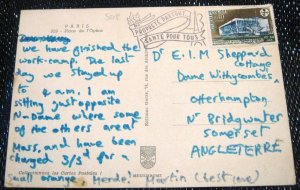 PARIS
Place de l'Opéra
We have finished the
work-camp. The last
day we stayed up
to 4 a.m. I am
sitting just opposite
N-Dame where some
of the others are at
Mass, and have been
charged 3/5d for a
small orange. Merde! Martin (best love)
Collectionnez les Cartes Postales !
PROPRETÉ PARTOUT
SANTÉ POUR TOUS
Dr E.I.M Sheppard
Cottage
Dame Withycombes,
Otterhampton
Nr Bridgwater
Somerset
ANGLETERRE